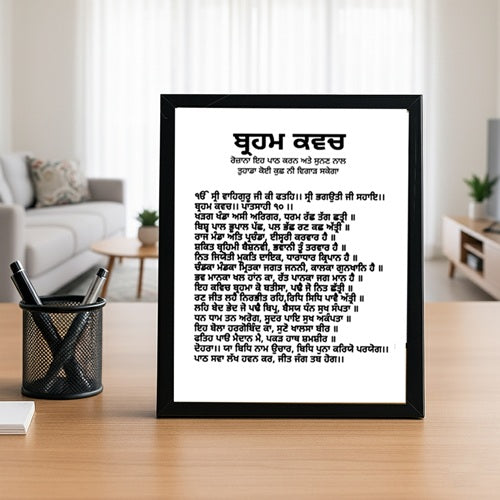 ਬ੍ਰਹਮ ਕਵਚ
ਰੋਜ਼ਾਨਾ ਇਹ ਪਾਠ ਕਰਨ ਅਤੇ ਸੁਣਨ ਨਾਲ
ਤੁਹਾਡਾ ਕੋਈ ਕੁਛ ਨੀ ਵਿਗਾੜ ਸਕੇਗਾ
ੴ ਸ੍ਰੀ ਵਾਹਿਗੁਰੂ ਜੀ ਕੀ ਫਤਹਿ।। ਸ੍ਰੀ ਭਗਉਤੀ ਜੀ ਸਹਾਇ।।
ਬ੍ਰਹਮ ਕਵਚ।। ਪਾਤਸਾਹੀ ੧੦ ।।
ਖੜਗ ਖੰਡਾ ਅਸੀ ਅਰਿਗਰ, ਧਰਮ ਰੱਛ ਤੱਗ ਛਤ੍ਰੀ ॥
ਬਿਰਧੁ ਪਾਲ ਭੂਪਾਲ ਪੱਛ, ਪਲ ਭੱਛ ਰਣ ਕਛ ਅੱਤ੍ਰੀ ॥
ਰਾਜ ਮੰਡਾ ਅਤਿ ਪ੍ਰਚੰਡਾ, ਈਸੂਰੀ ਕਰਵਾਰ ਹੈ ॥
ਸ਼ਕਿਤ ਬ੍ਰਹਿਮੀ ਬੈਸ਼ਨਵੀ, ਭਵਾਨੀ ਤੂੰ ਤਰਵਾਰ ਹੈ ॥
ਨਿਤ ਜਿਯੇਤੀ ਮੁਕਤਿ ਦਾਇਕ, ਧਾਰਾਧਾਰ ਕ੍ਰਿਪਾਨ ਹੈ ॥
ਚੰਡਕਾ ਮੰਡਕਾ ਮ੍ਰਿਤਕਾ ਜਗਤ ਜਨਨੀ, ਕਾਲਕਾ ਗੁਨਖਾਨਿ ਹੈ ॥
ਭਵ ਮਾਨਕਾ ਖਲ ਹਾਨ ਕਾ, ਰੱਣ ਪਾਨਕਾ ਜਗ ਮਾਨ ਹੈ ॥
ਇਹ ਕਵਿਚ ਬ੍ਰਹਮਾ ਕੋ ਬਤੀਸਾ, ਪਢੈ ਜੋ ਨਿਤ ਛੱਤ੍ਰੀ ॥
ਰਣ ਜੀਤ ਲਹੈਂ ਨਿਰਭੀਤ ਰਹਿ,ਰਿਧਿ ਸਿਧਿ ਪਾਵੈ ਅੱਤ੍ਰੀ ॥
ਲਹਿ ਬੇਦ ਭੇਦ ਜੋ ਪਢੈ ਬਿਪ੍ਰ, ਬੈਸਯ ਧੰਨ ਸੁਖ ਸੰਪਤਾ ॥
ਧਨ ਧਾਮ ਤਨ ਅਰੋਗ, ਸੁਦਰ ਪਾਇ ਸੁਖ ਅਕੰਪਤਾ ॥
ਇਹ ਬੇਲਾ ਹਰਗੋਬਿੰਦ ਕਾ, ਸੁਣੋ ਖਾਲਸਾ ਬੀਰ ॥
ਫਤਿਹ ਪਾਓ ਮੈਦਾਨ ਮੈ, ਪਕੜ ਹਾਥ ਸ਼ਮਸ਼ੀਰ ॥
ਦੋਹਰਾ।। ਯਾ ਬਿਧਿ ਨਾਮ ਉਚਾਰ, ਬਿਧਿ ਪੂਨਾ ਕਰਿਯੋ ਪਰਯੋਗ।।
ਪਾਠ ਸਵਾ ਲੱਖ ਹਵਨ ਕਰ, ਜੀਤ ਜੰਗ ਤਬ ਹੋਗ।।